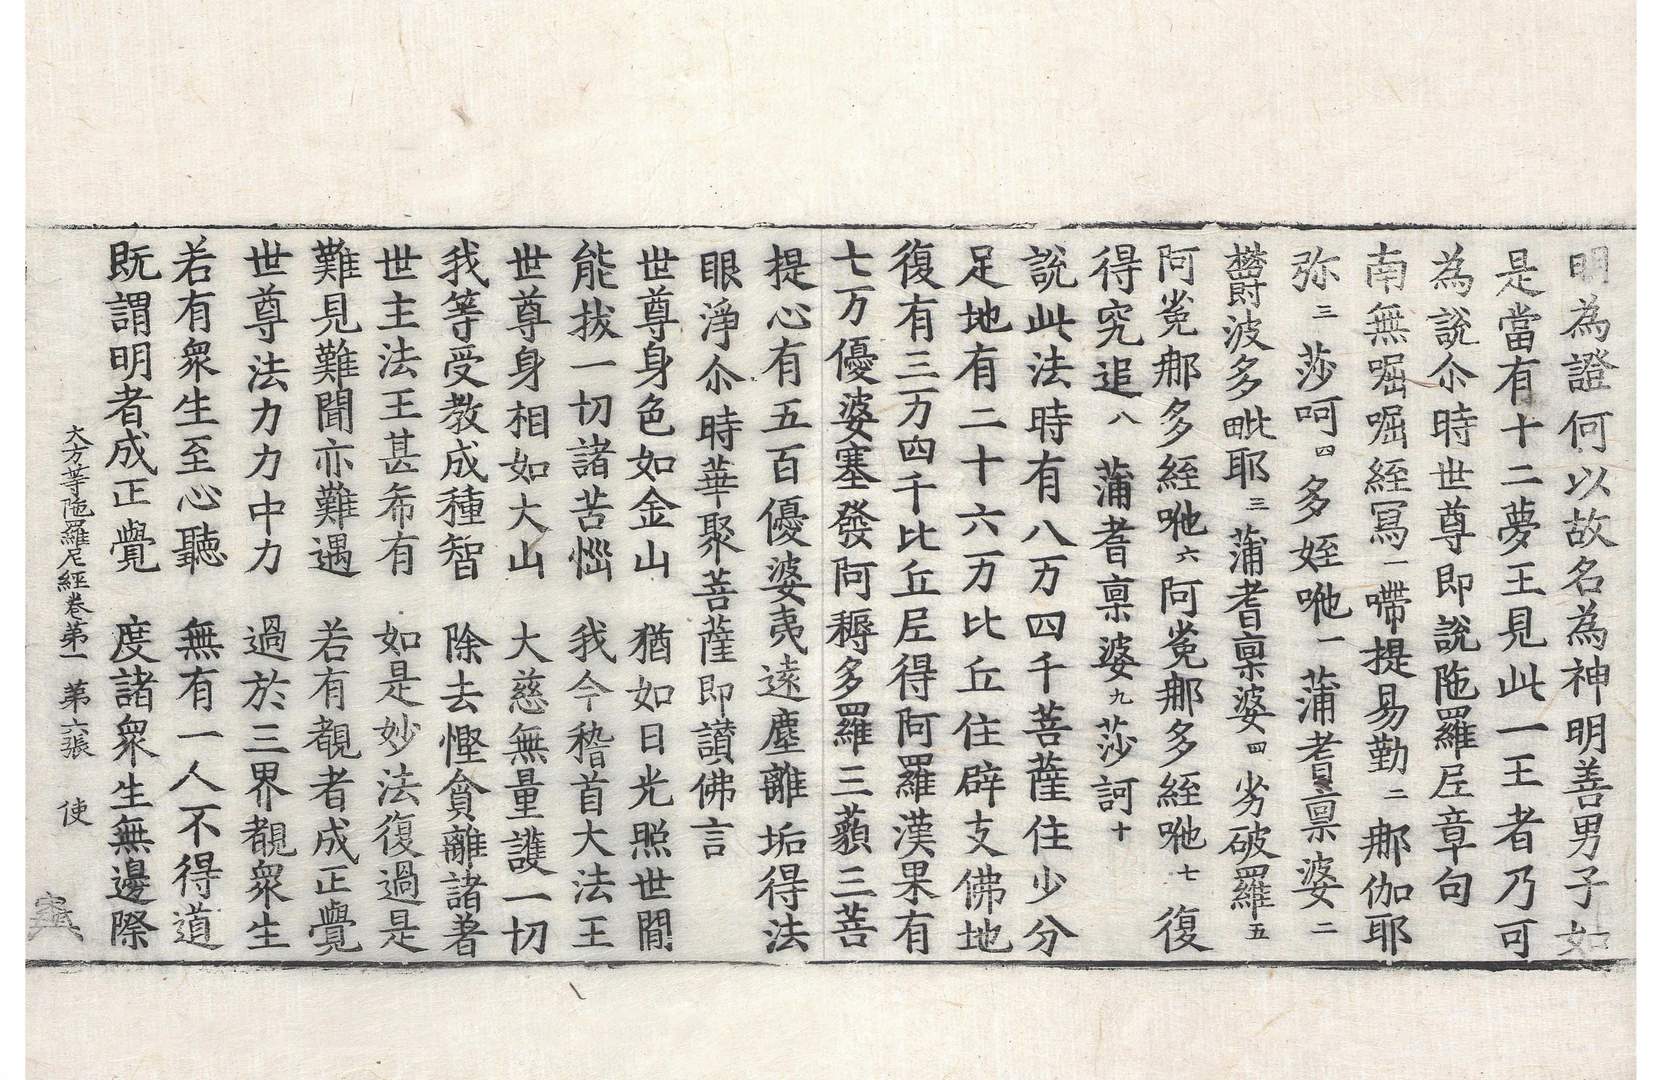 明為證何以故名為神明善男子如
是當有十二夢王見此一王者乃可
為說尒時世尊即說陁羅尼章句
南無𡀍𡀍絰寫一嚌提易勤二郍伽耶
弥三莎呵四多姪哋一蒲耆廩婆二
欝波多毗耶三蒲耆廩婆四劣破羅五
阿㝹那多絰哋六阿㝹那多絰哋七復
得究追八蒲耆廩婆九莎訶十
說此法時有八万四千菩薩住少分
足地有二十六万比丘住辟支佛地
復有三万四千比丘尼得阿羅漢果有
七万優婆塞發阿耨多羅三藐三菩
提心有五百優婆夷遠塵離垢得法
眼淨尒時華聚菩薩即讃佛言
世尊身色如金山　猶如日光照世間
能拔一切諸苦惱　我今稽首大法王
世尊身相如大山　大慈無量護一切
我等受教成種智　除去慳貪離諸著
世主法王甚希有　如是妙法復過是
難見難聞亦難遇　若有覩者成正覺
世尊法力力中力　過於三界覩衆生
若有衆生至心聽　無有一人不得道
既謂明者成正覺　度諸衆生無邊際
大方等陁羅尼經卷第一　第六張　使